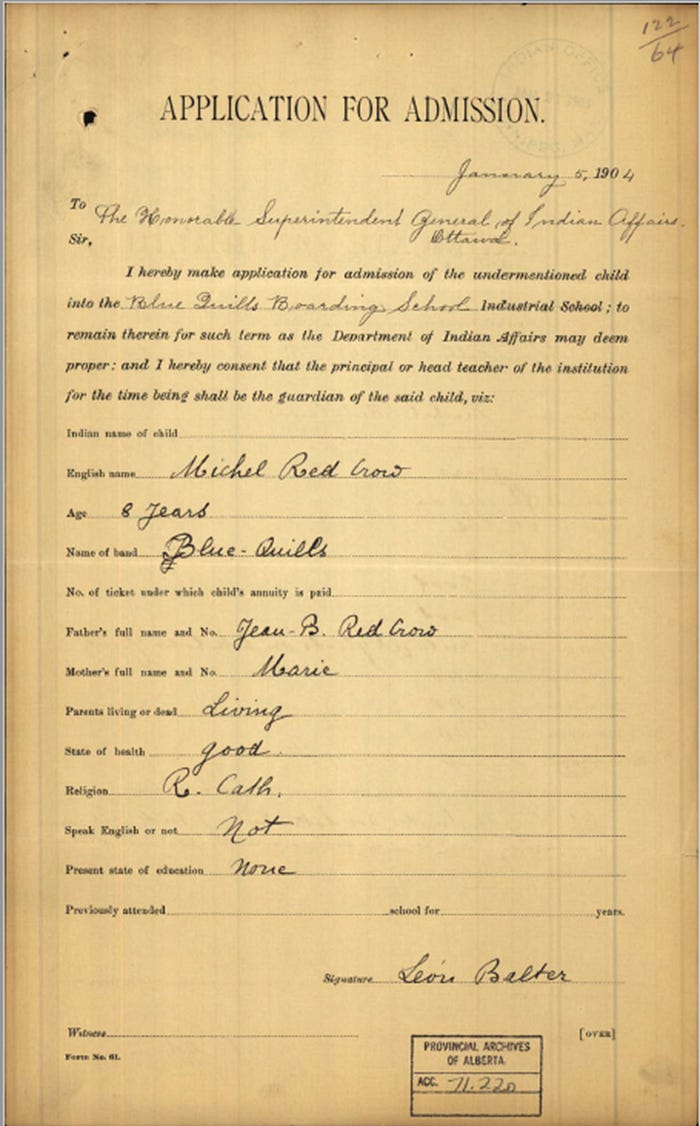 122
64
INDIAN OFFICE
APPLICATION FOR ADMISSION.
January 5, 1904
To The Honorable Superintendent General of Indian Affairs.
Sir, Ottawa.
I hereby make application for admission of the undermentioned child
into the Blue Quills Boarding School Industrial School; to
remain therein for such term as the Department of Indian Affairs may deem
proper: and I hereby consent that the principal or head teacher of the institution
for the time being shall be the guardian of the said child, viz:
Indian name of child
English name Michel Red Crow
Age 8 Years
Name of band Blue-Quills
No. of ticket under which child's annuity is paid
Father's full name and No. Jean-B. Red Crow
Mother's full name and No. Marie
Parents living or dead Living
State of health good.
Religion R. Cath.
Speak English or not Not
Present state of education None
Previously attended school for years.
Signature Léon Balter
Witness [OVER]
Form No. 61.
PROVINCIAL ARCHIVES
OF ALBERTA
ACC. 71.220